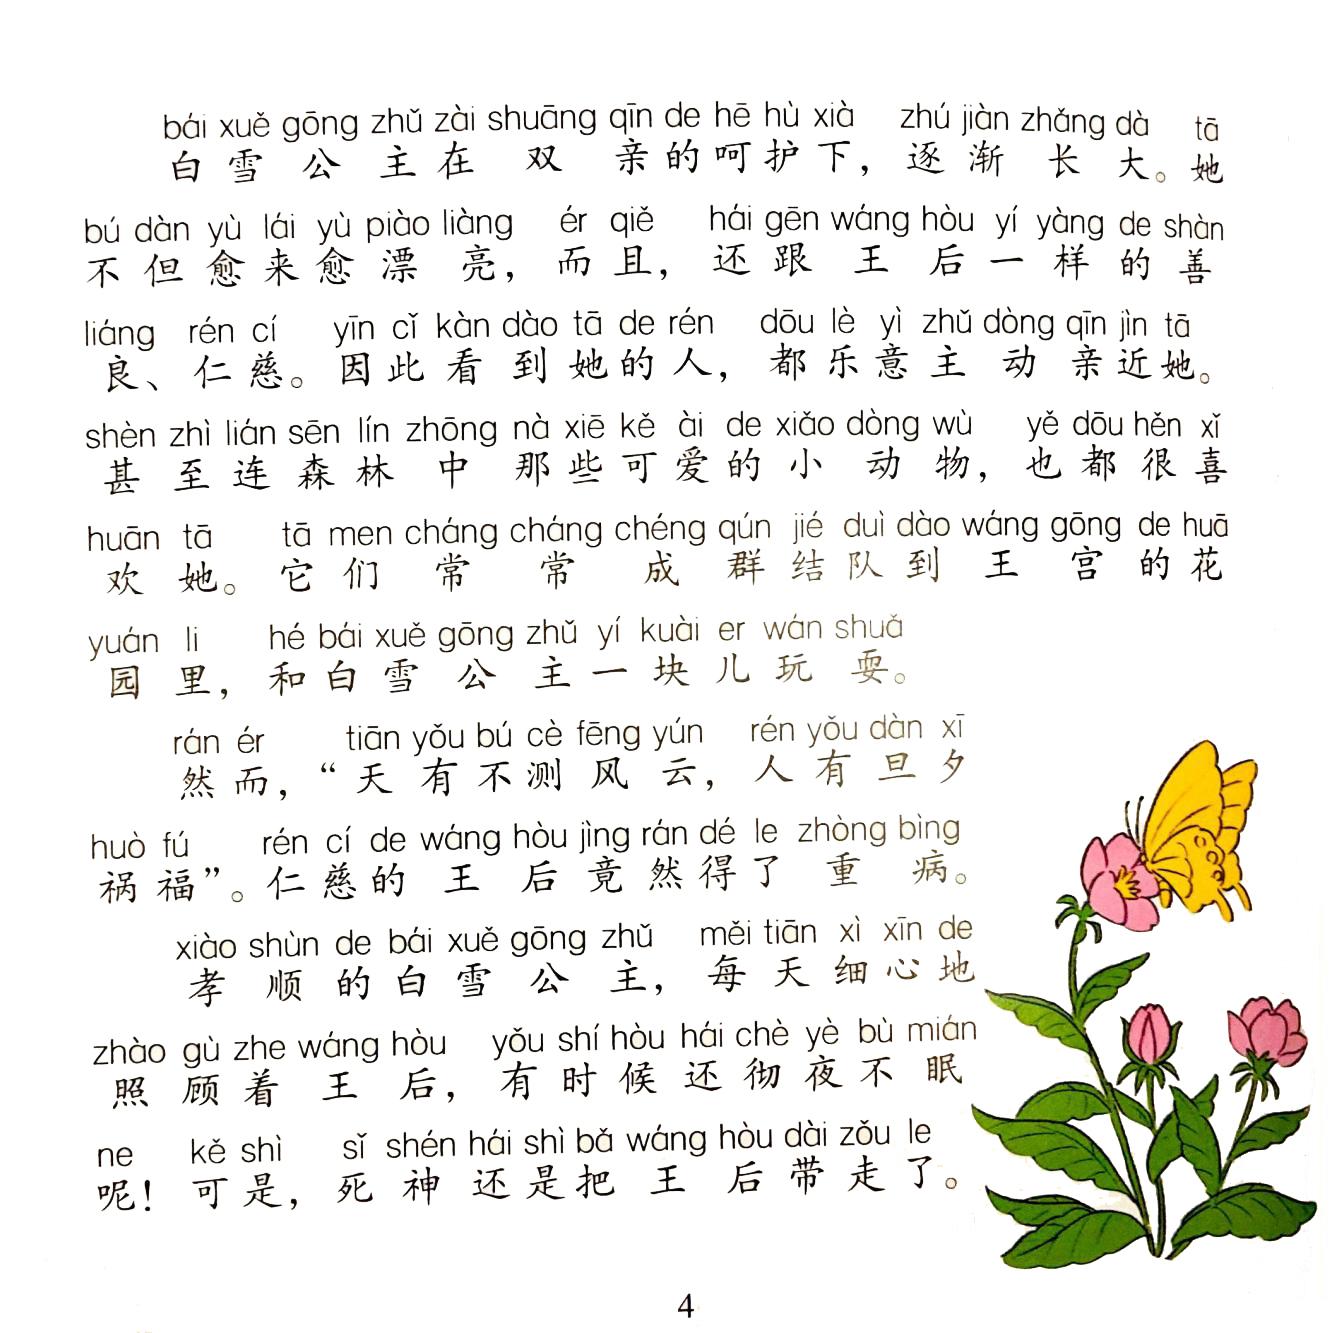 bái xuě gōng zhǔ zài shuāng qīn de hē hù xià zhú jiàn zhǎng dà tā
白雪公主在双亲的呵护下，逐渐长大。她
bú dàn yù lái yù piào liàng ér qiě hái gēn wáng hòu yí yàng de shàn
不但愈来愈漂亮，而且，还跟王后一样的善
liáng rén cí yīn cǐ kàn dào tā de rén dōu lè yì zhǔ dòng qīn jìn tā
良、仁慈。因此看到她的人，都乐意主动亲近她。
shèn zhì lián sēn lín zhōng nà xiē kě ài de xiǎo dòng wù yě dōu hěn xǐ
甚至连森林中那些可爱的小动物，也都很喜
huān tā tā men cháng cháng chéng qún jié duì dào wáng gōng de huā
欢她。它们常常成群结队到王宫的花
yuán li hé bái xuě gōng zhǔ yí kuài er wán shuǎ
园里，和白雪公主一块儿玩耍。
rán ér tiān yǒu bú cè fēng yún rén yǒu dàn xī
然而，“天有不测风云，人有旦夕
huò fú rén cí de wáng hòu jìng rán dé le zhòng bìng
祸福”。仁慈的王后竟然得了重病。
xiào shùn de bái xuě gōng zhǔ měi tiān xì xīn de
孝顺的白雪公主，每天细心地
zhào gù zhe wáng hòu yǒu shí hòu hái chè yè bù mián
照顾着王后，有时候还彻夜不眠
ne kě shì sǐ shén hái shì bǎ wáng hòu dài zǒu le
呢！可是，死神还是把王后带走了。
4